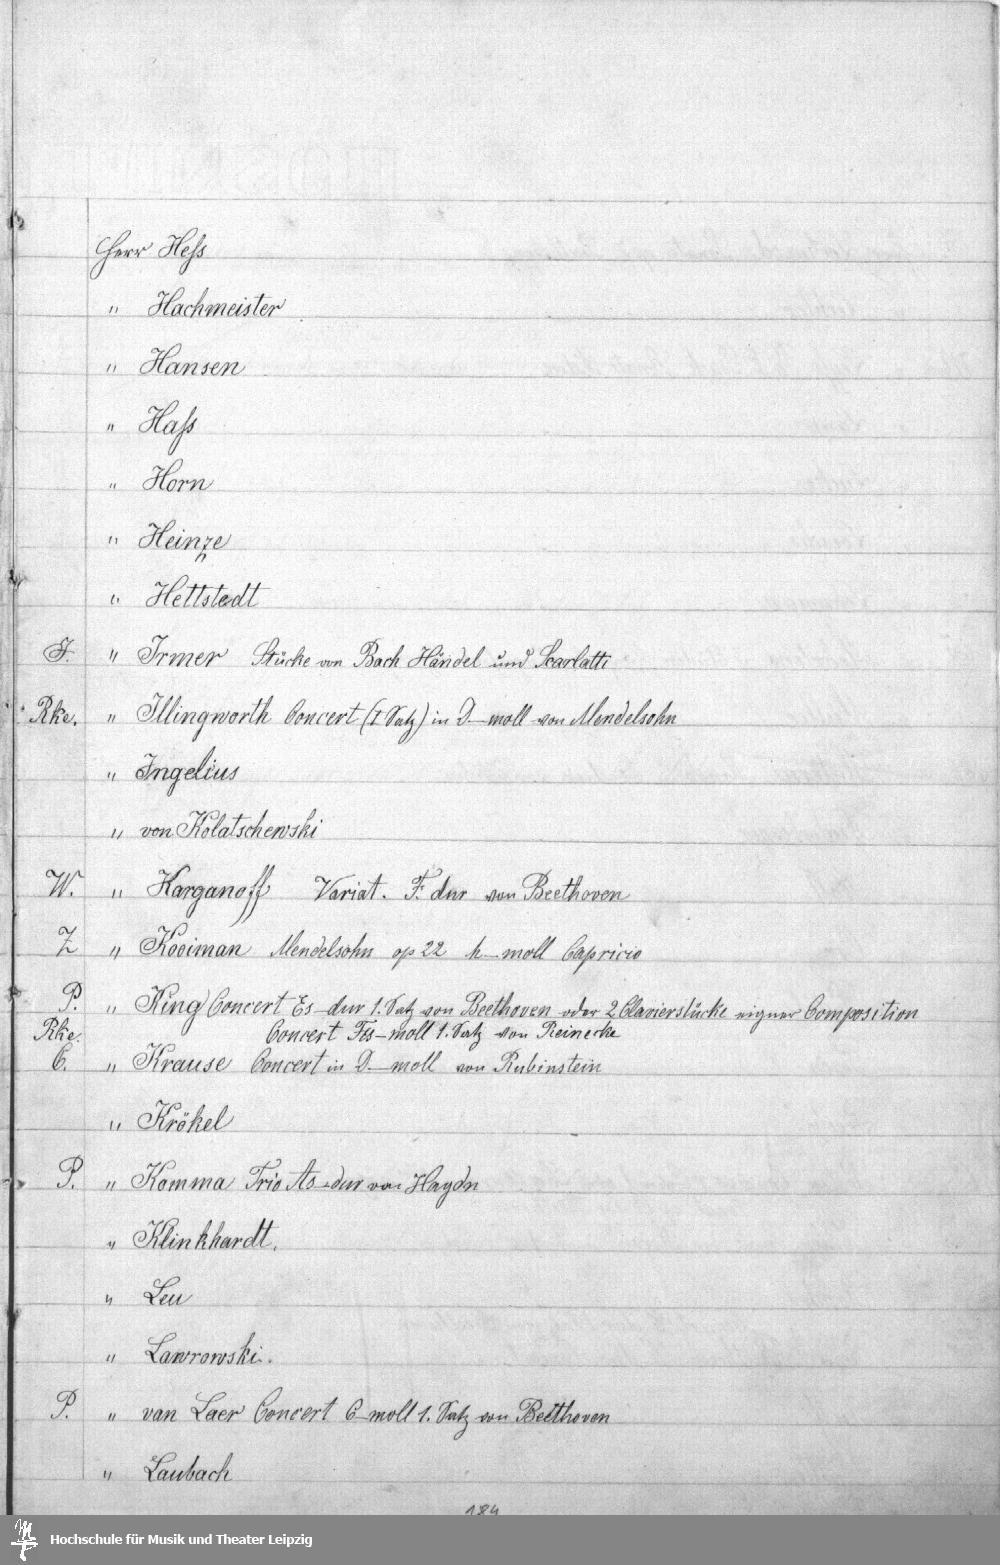 Herr Heſs
" Hachmeister
" Hansen
" Haſs
" Horn
" Heinze
" Hettstedt
J. " Irmer Stücke von Bach Händel und Scarlatti
Rke. " Illingworth Concert (I Satz) in D-moll von Mendelsohn
" Ingelius
" von Kolatschewski
W. " Karganoff Variat. F. dur von Beethoven
Z " Kooiman Mendelsohn op 22 h-moll Capricio
P. " King Concert Es-dur 1. Satz von Beethoven oder 2 Clavierstücke eigner Composition
Rke. Concert Fis-moll 1. Satz von Reinecke
C. " Krause Concert in D-moll von Rubinstein
" Krökel
P. " Komma Trio As-dur von Haydn
" Klinkhardt.
" Leu
" Lawrowski.
P. " van Laer Concert C-moll 1. Satz von Beethoven
" Laubach
184
Hochschule für Musik und Theater Leipzig